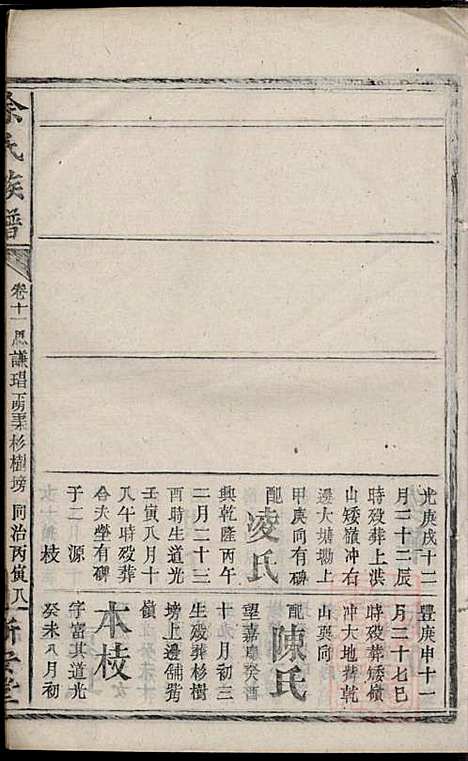 光庚戌十二
月二十二辰
時殁葬上洪
山矮嶺冲右
邊大塘墈上
甲庚向有碑
配
凌氏
興乾隆丙午
二月二十三
酉時生道光
壬寅八月十
八午時殁葬
合夫塋有碑
子二 源
枝
豐庚申十一
月二十七巳
時殁葬矮嶺
冲大地
山艮向
配
陳氏
嘉慶癸酉
十九月初三
生殁葬杉樹
塝上邊舖背
嶺
本枝
字富其道光
癸未八月初
余氏族譜
卷十一
謙瑁
杉樹塝
同治丙寅